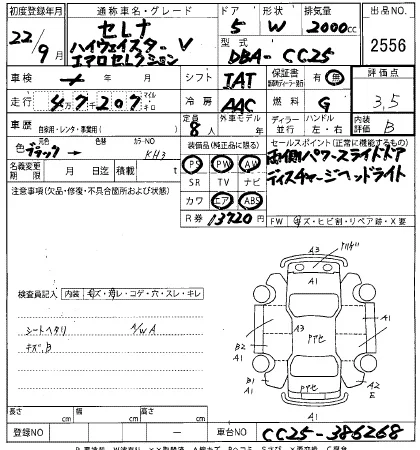 初度登録年月 通称車名・グレード ドア 形状 排気量 出品NO
22/9月 セレナ 5 W 2000cc 2556
ハイウェイスター V
エアロセレクション 型式 DBA-CC25 評価点
車検 年 月 シフト IAT 保証書 有 無 3,5
走行 4万7千207 マイル キロ 冷房 AAC 燃料 G
車歴 自家用・レンタ・事業用( ) 定員 8人 外車モデル 年 ディーラー 並行 ハンドル 左・右 内装 評価 B
色 元色 ブラック 色替 カラーNO KH3 装備品(純正品に限る) セールスポイント(正常に機能するもの)
名義変更期限 月 日迄 積載 t PS PW AW 両側パワースライドドア
注意事項(欠品・修復・不具合箇所および状態) SR TV ナビ ディスチャージヘッドライト
カワ エアB ABS
R券 13720円 FW キズ・ヒビ割・リペア跡・X要
A3
A1
検査員記入 内装 キズ・スレ・コゲ・穴・スレ・キレ
シートヘタリ A/WA
キズ,B
A3
B2 A1
A1
B1 A1
A2 E
A1
長さ cm 幅 cm 高さ cm
登録NO 車台NO CC25-386268